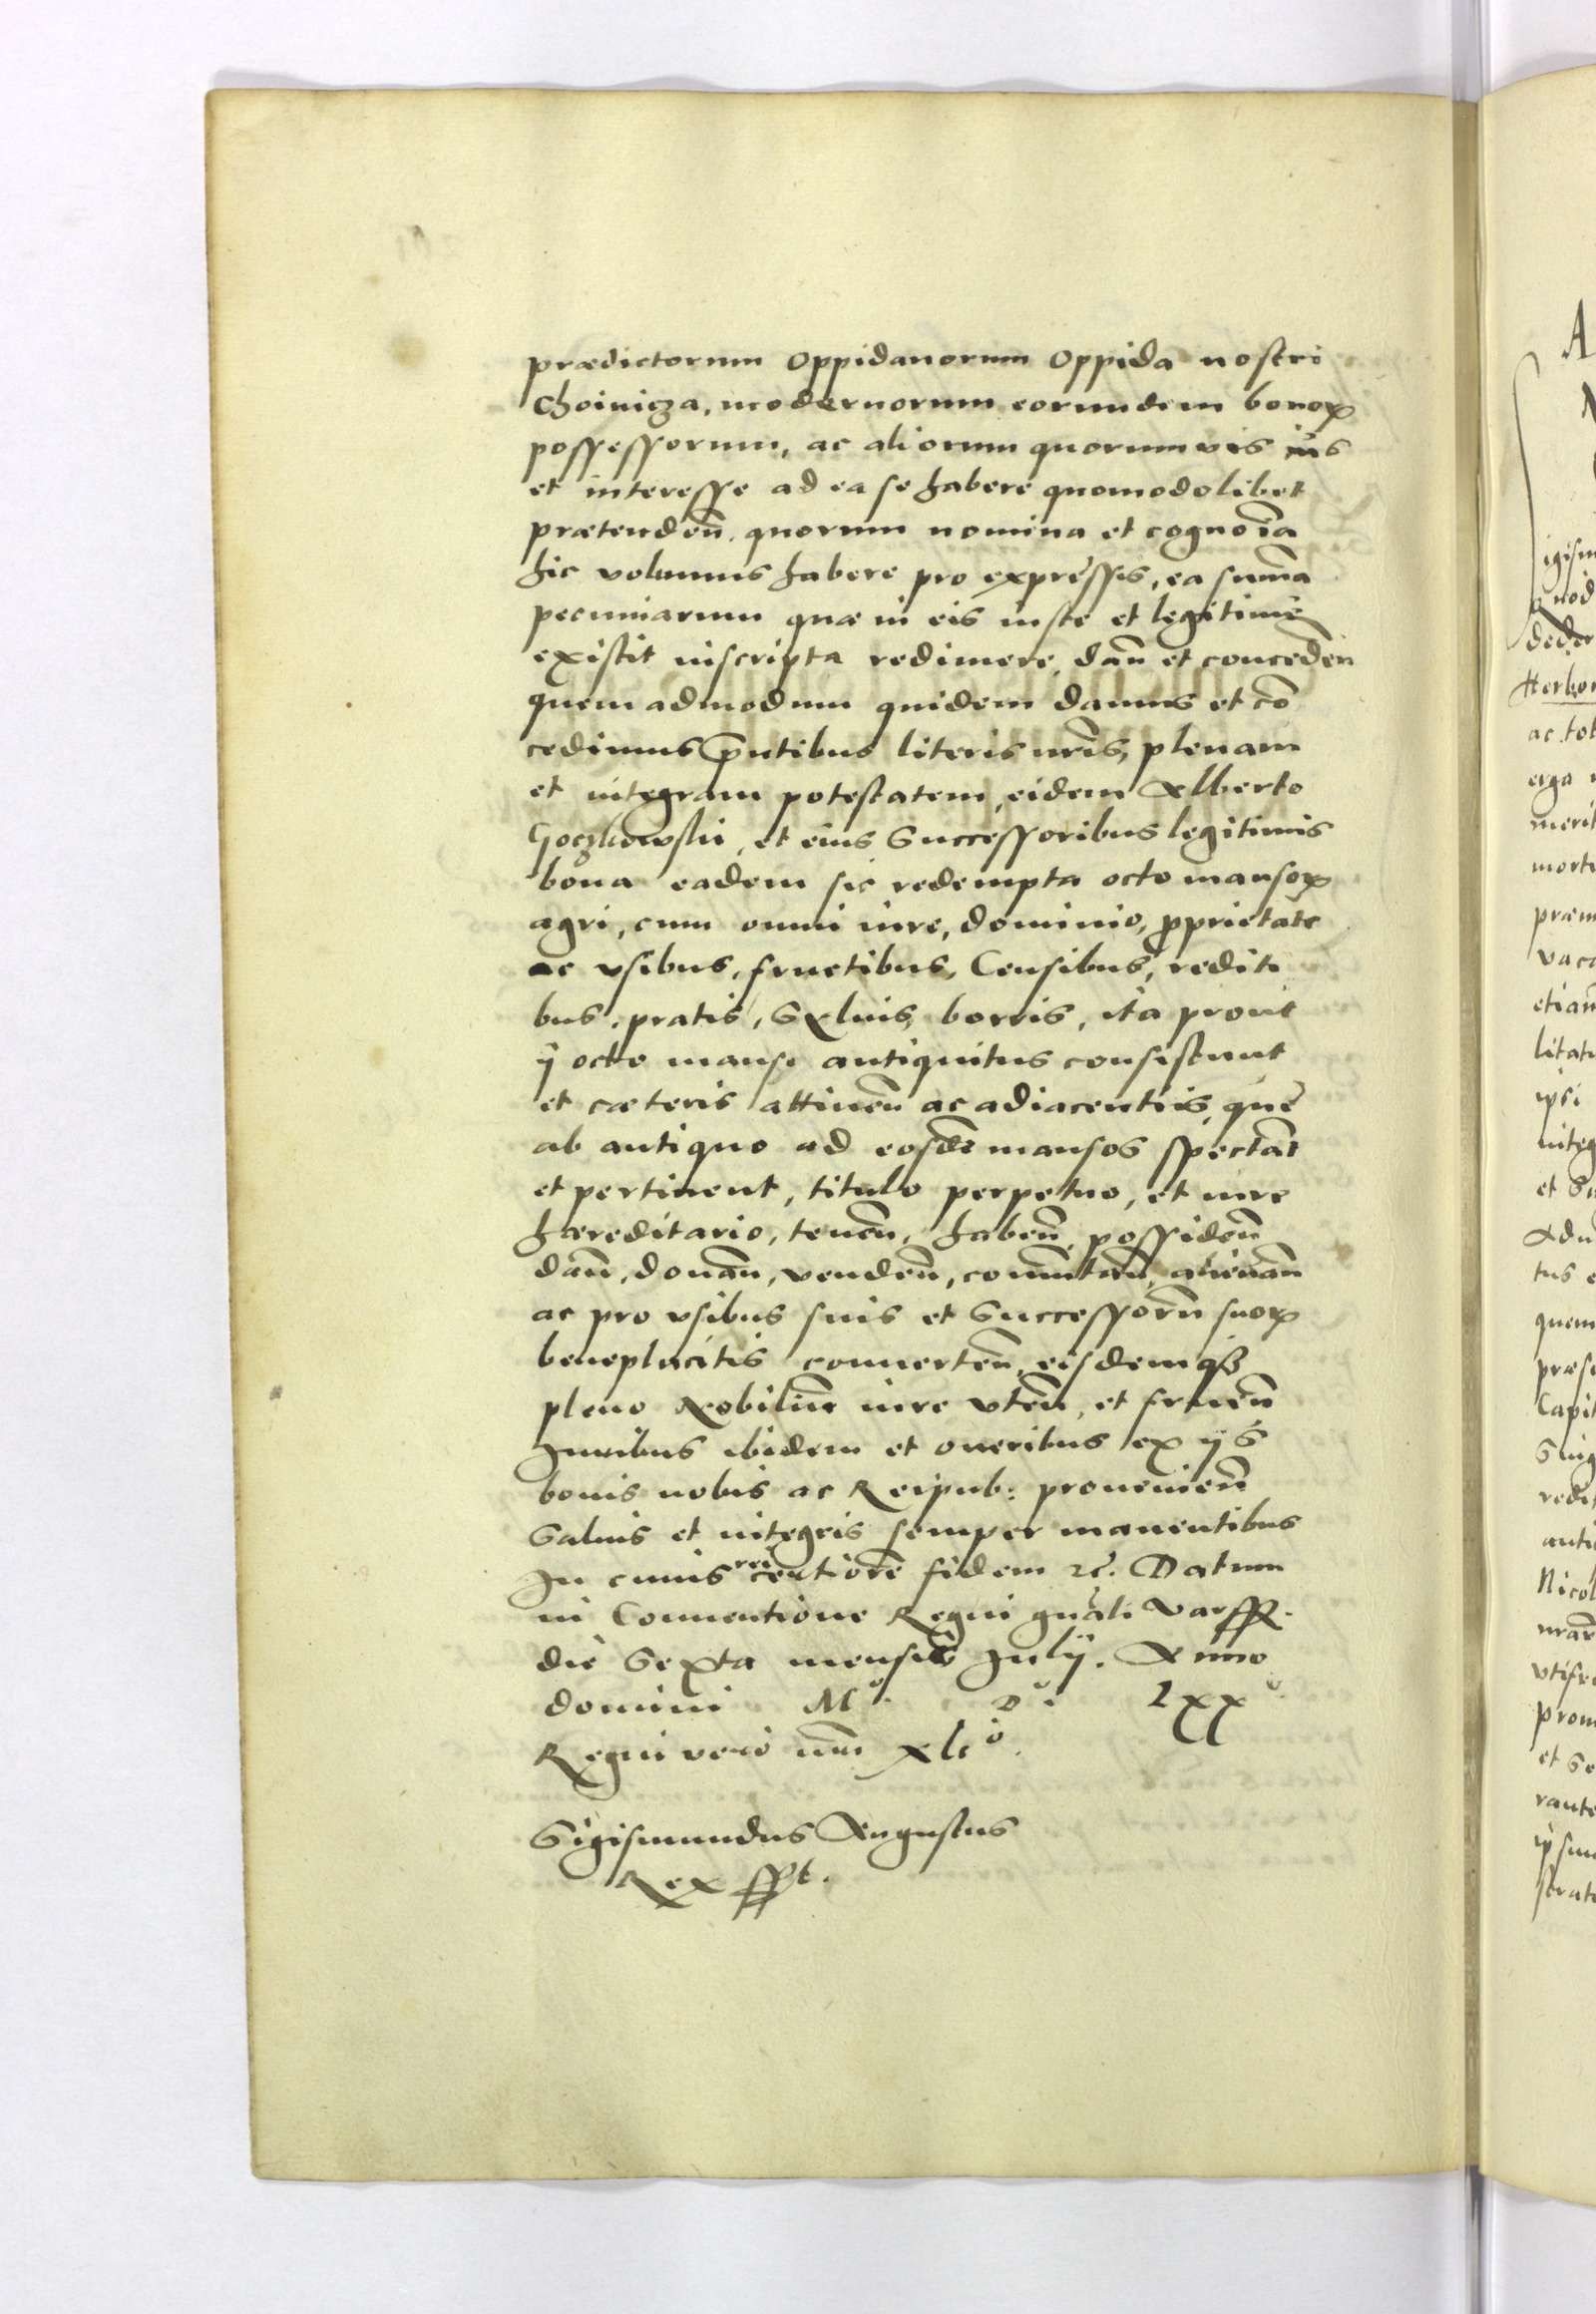 prædictorum Oppidanorum Oppida nostri
Choinicza, modernorum eorundem bonoꝝ
possessorum, ac aliorum quorumvis ius
et interesse ad ea se habere quomodolibet
prætendeñ. quorum nomina et cognoĩa
hic volumus habere pro expressis, ea sum̃a
pecuniarum quæ in eis iuste et legitime
existit inscripta redimere, dañ et conceden̄
quemadmodum quidem damus et cõ
cedimus p̃ntibus literis nr̃is, plenam
et integram potestatem, eidem Alberto
Goczkowski, et eius Successoribus legitimis
bona eadem sic redempta octo mansoꝝ
agri, cum omni iure, dominio, proprietate
ac vsibus, fructibus, Censibus, rediti
bus, pratis, Syluis, borris, ita prout
ij octo mansi antiquitus consistunt
et cæteris attineñ ac adiacentiis, que
ab antiquo ad eosdẽ mansos spectãt
et pertinent, titulo perpetuo, et iure
hæreditario, teneñ, habeñ, possideñ
dañ, donañ, vendeñ, com̃utañ, alienañ
ac pro vsibus suis et Successorũ suoꝝ
beneplacitis conuerteñ, eisdemqꝫ
pleno Nobiliũ iure vteñ, et frueñ
Iuribus ibidem et oneribus ex ijs
bonis nobis ac Reipub: prouenieñ
Saluis et integris semper manentibus
In cuius rei certiorẽ fidem ꝛc̃. Datum
in Conuentione Regni gñali Varsſ.
die Sexta mensis Iulij. Anno
domini Mº. Dº. Lxxº
Regni vero nr̃i xliº.
Sigismundus Augustus
Rex sspt.